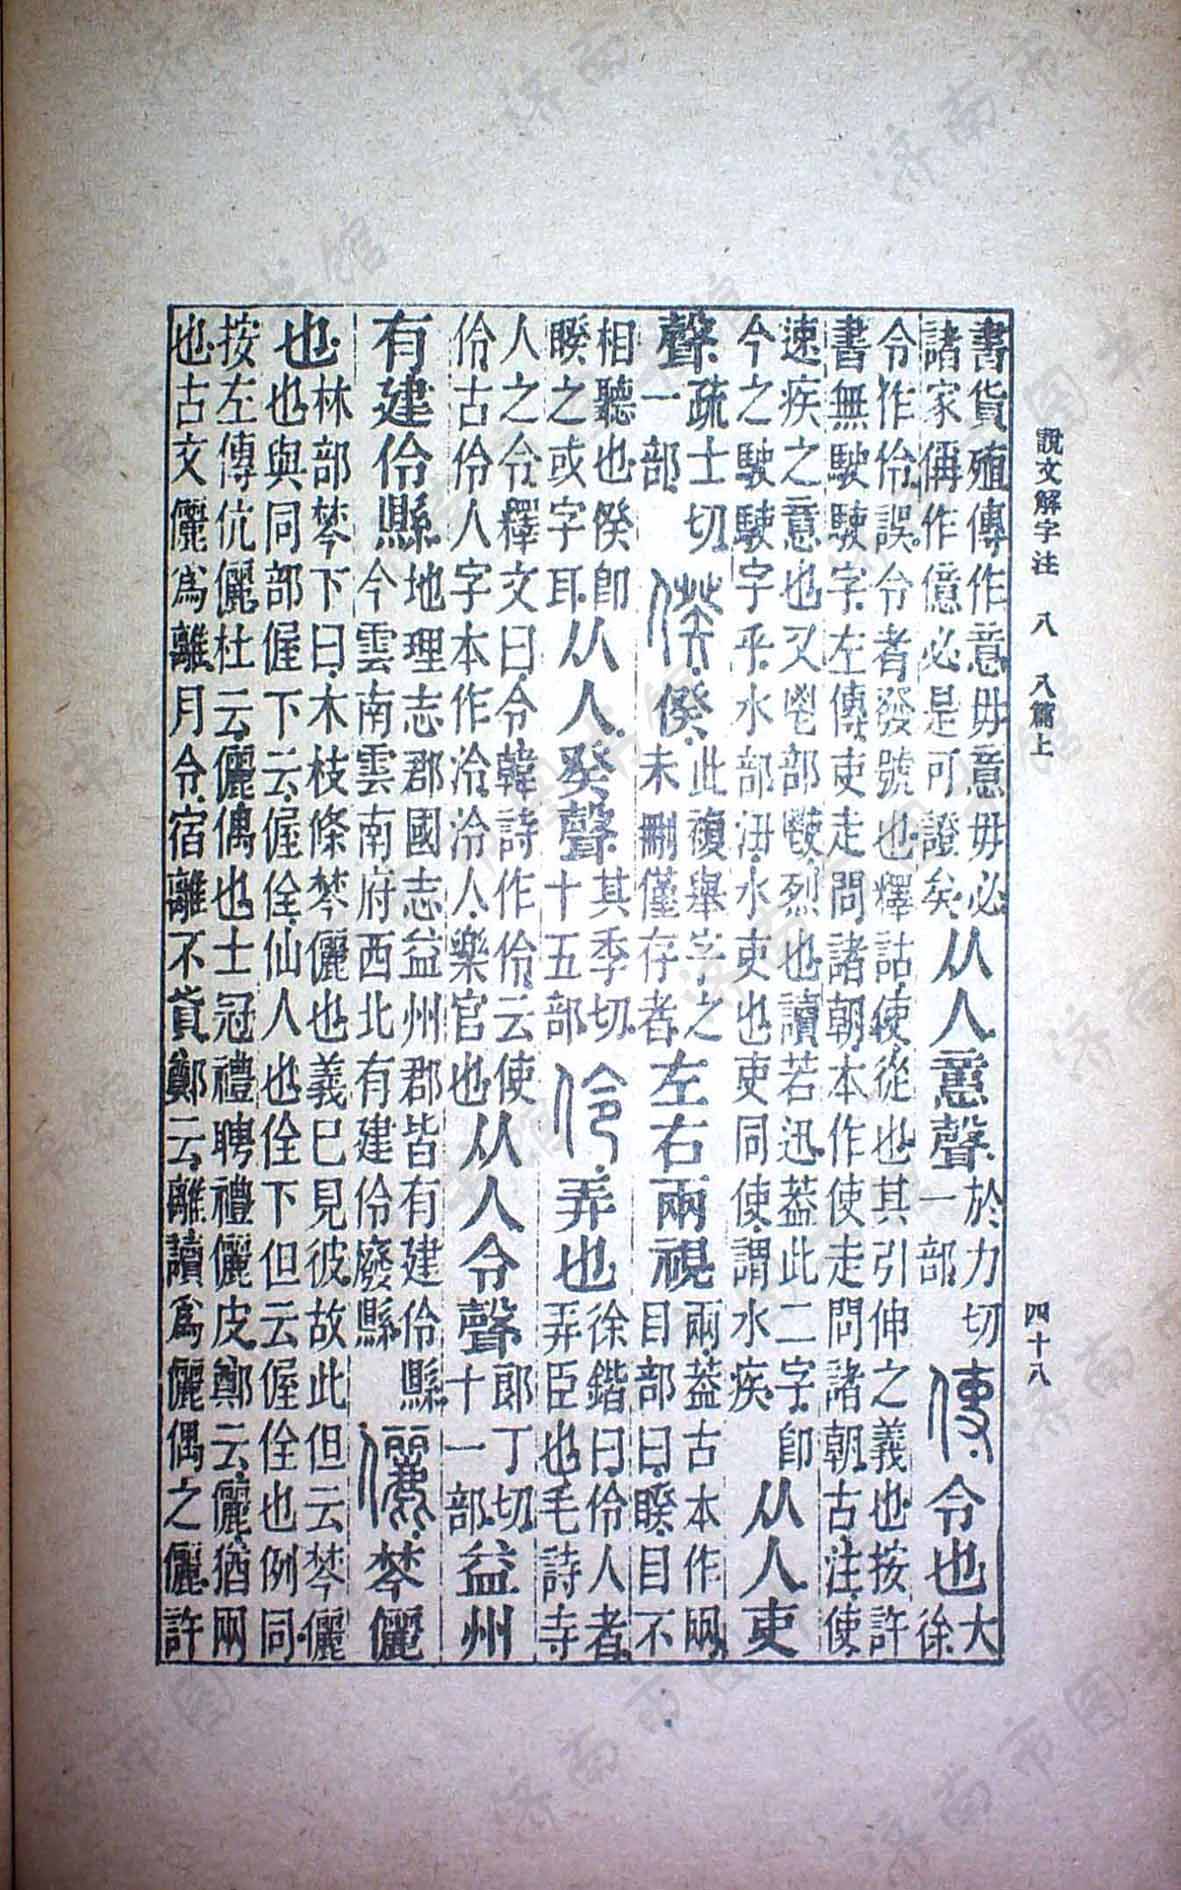 說文解字注 八 八篇上 四十八
書貨殖傳作意毋意毋必諸家偁作億必是可證矣从人𢡃聲於力切一部使令也大徐
令作伶誤令者發號也釋詁使從也其引伸之義也按許書無駛駛字左傳吏走問諸朝本作使走問諸朝古注使
速疾之意也又鬯部烈也讀若迅葢此二字卽今之駛駛字乎水部水吏也吏同使謂水疾从人吏
聲疏士切一部𠊾𠊾此複舉字之未刪僅存者左右兩視兩葢古本作㒳目部曰睽目不
相聽也𠊾卽睽之或字耳从人癸聲其季切十五部伶弄也徐鍇曰伶人者弄臣也毛詩寺
人之令釋文曰令韓詩作伶云使伶古伶人字本作泠泠人樂官也从人令聲郎丁切十一部益州
有建伶縣地理志郡國志益州郡皆有建伶縣今雲南雲南府西北有建伶廢縣儷棽儷
也林部棽下曰木枝條棽儷也義已見彼故此但云棽儷也與同部偓下云偓佺仙人也佺下但云偓佺也例同
按左傳伉儷杜云儷偶也士冠禮聘禮儷皮鄭云儷猶兩也古文儷爲離月令宿離不貣鄭云離讀爲儷偶之儷許
济南市图书馆